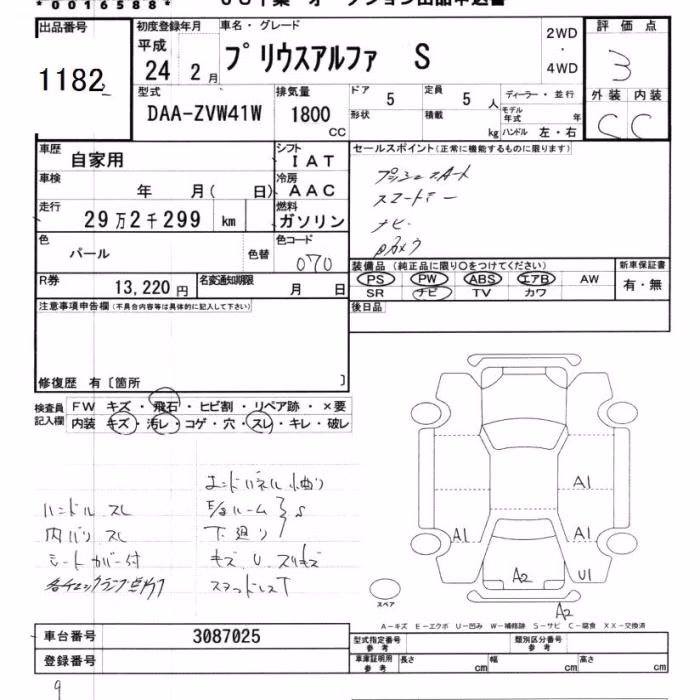 * 0 0 1 6 5 8 8 *
出品番号
1182
初度登録年月
平成
24 2 月
車名・グレード
プリウスアルファ S
2WD
・
4WD
評 価 点
3
外 装 内 装
C C
型式
DAA-ZVW41W
排気量
1800
CC
ドア
5
定員
5 人
形状
積載
kg
ディーラー ・ 並 行
モデル
年式 年
ハンドル 左・右
車歴
自家用
シフト
I A T
車検
年 月( 日)
冷房
A A C
走行
29 万 2 千 299 km
燃料
ガソリン
色
パール
色替
色コード
070
R券
13,220 円
名変通知期限
月 日
セールスポイント(正常に機能するものに限ります)
プッシュスタート
スマートキー
ナビ
Bカメラ
装備品 (純正品に限り○をつけてください)
PS PW ABS エアB AW
SR ナビ TV カワ
新車保証書
有・無
後日品
注意事項申告欄(不具合内容等は具体的に記入して下さい)
修復歴 有〔箇所 〕
検査員
記入欄
FW キズ ・ 飛石 ・ ヒビ割 ・ リペア跡 ・ ×要
内装 キズ ・ 汚レ ・ コゲ ・ 穴 ・ スレ ・ キレ ・ 破レ
エンドパネル 小曲り
ハンドル スレ
内バリ スレ
下廻り
S
シートカバー付
キズ、U、スリキズ
各チェックランプ点灯
スタッドレスT
A1
A1
A1
A2
U1
A2
スペア
A－キズ E－エクボ U－凹み W－補修跡 S－サビ C－腐食 XX－交換済
車台番号
3087025
登録番号
型式指定番号
参 考
類別区分番号
参 考
車庫証明用
参 考
長さ cm
幅 cm
高さ cm
9